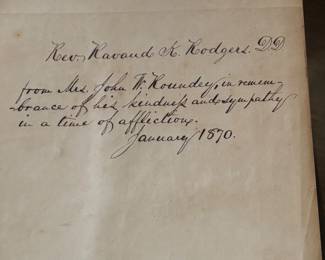 Rev. Ravaud K. Rodgers. D.D.
from Mrs. John W. Roundey, in remem-
-brance of his kindness and sympathy
in a time of affliction.
January 1870.